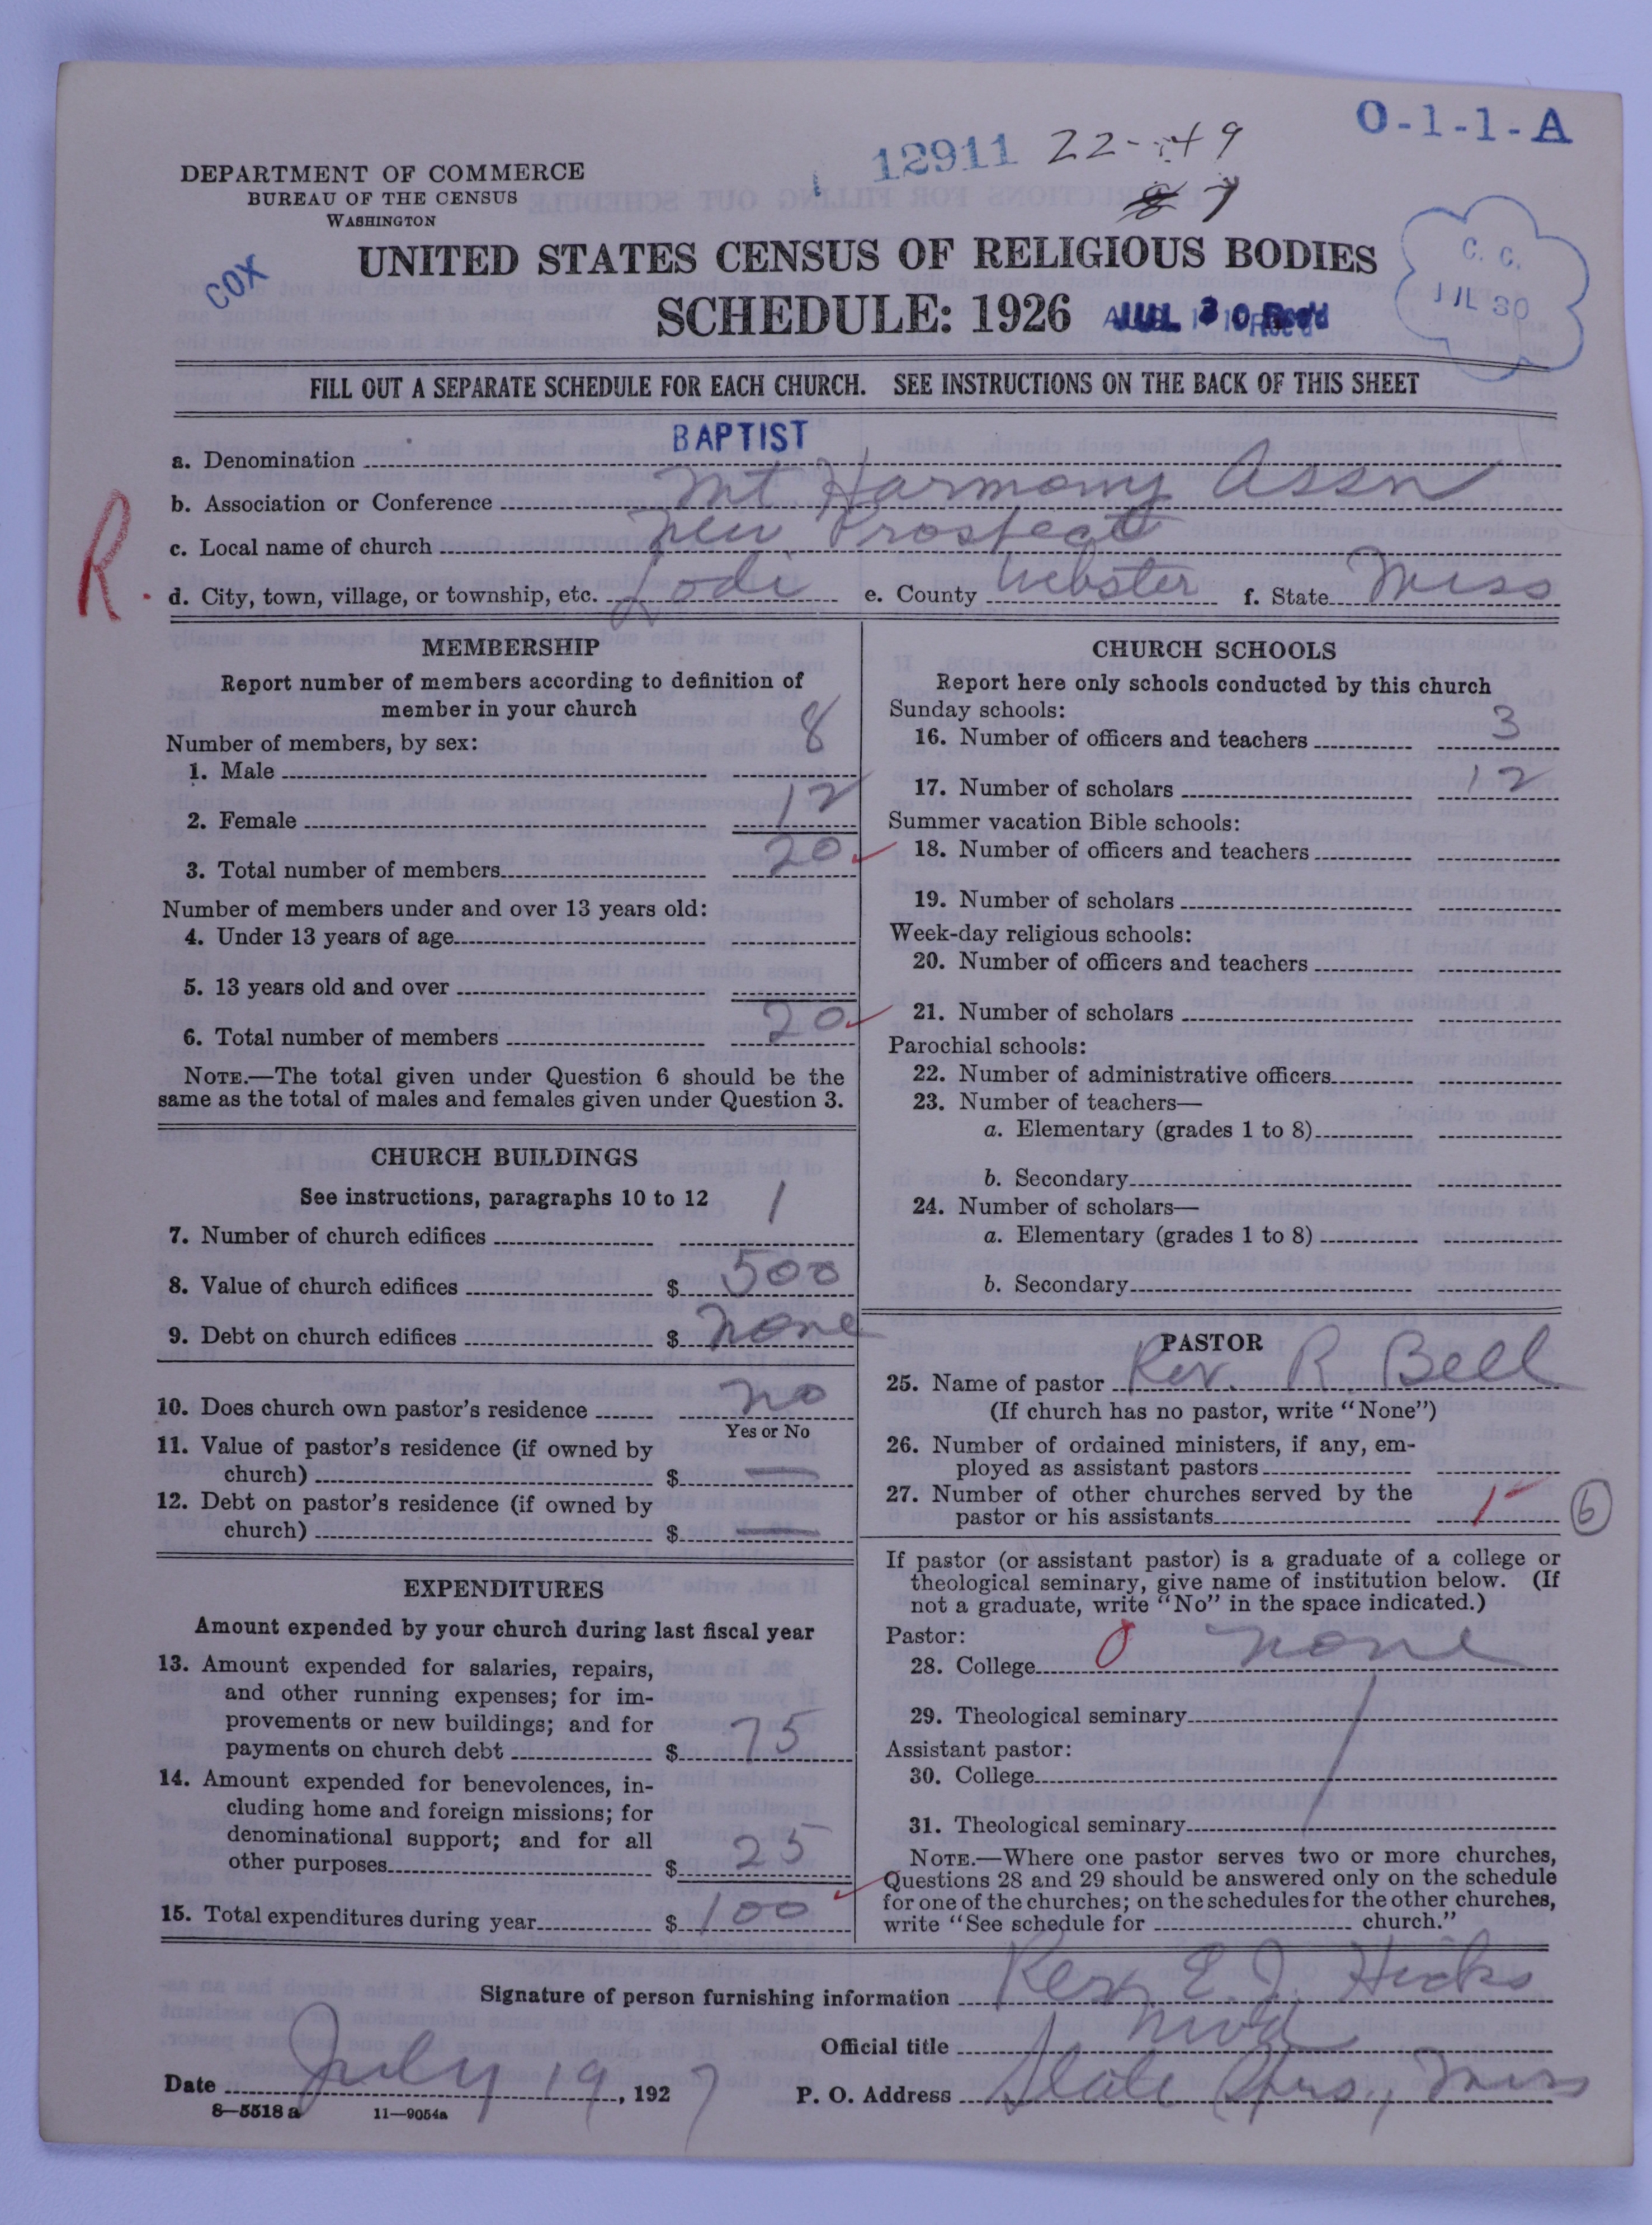 O-1-1-A
12911 22-49
7
DEPARTMENT OF COMMERCE
BUREAU OF THE CENSUS
WASHINGTON
COX
UNITED STATES CENSUS OF RELIGIOUS BODIES
SCHEDULE: 1926
JUL 30 Rec'd
C. C.
JUL 30
FILL OUT A SEPARATE SCHEDULE FOR EACH CHURCH. SEE INSTRUCTIONS ON THE BACK OF THIS SHEET
a. Denomination BAPTIST
b. Association or Conference Mt Harmony Assn
c. Local name of church New Prospect
R.
d. City, town, village, or township, etc. Lodi e. County Webster f. State Miss
MEMBERSHIP
Report number of members according to definition of
member in your church
Number of members, by sex:
1. Male 8
2. Female 12
3. Total number of members 20
Number of members under and over 13 years old:
4. Under 13 years of age
5. 13 years old and over
6. Total number of members 20
NOTE.—The total given under Question 6 should be the
same as the total of males and females given under Question 3.
CHURCH BUILDINGS
See instructions, paragraphs 10 to 12
7. Number of church edifices 1
8. Value of church edifices $ 500
9. Debt on church edifices $ None
10. Does church own pastor's residence No
Yes or No
11. Value of pastor's residence (if owned by
church) $ —
12. Debt on pastor's residence (if owned by
church) $ —
EXPENDITURES
Amount expended by your church during last fiscal year
13. Amount expended for salaries, repairs,
and other running expenses; for im-
provements or new buildings; and for
payments on church debt $ 75
14. Amount expended for benevolences, in-
cluding home and foreign missions; for
denominational support; and for all
other purposes $ 25
15. Total expenditures during year $ 100
CHURCH SCHOOLS
Report here only schools conducted by this church
Sunday schools:
16. Number of officers and teachers 3
17. Number of scholars 12
Summer vacation Bible schools:
18. Number of officers and teachers
19. Number of scholars
Week-day religious schools:
20. Number of officers and teachers
21. Number of scholars
Parochial schools:
22. Number of administrative officers
23. Number of teachers—
a. Elementary (grades 1 to 8)
b. Secondary
24. Number of scholars—
a. Elementary (grades 1 to 8)
b. Secondary
PASTOR
25. Name of pastor Rev. R Bell
(If church has no pastor, write "None")
26. Number of ordained ministers, if any, em-
ployed as assistant pastors
27. Number of other churches served by the
pastor or his assistants 1
6
If pastor (or assistant pastor) is a graduate of a college or
theological seminary, give name of institution below. (If
not a graduate, write "No" in the space indicated.)
Pastor:
28. College 0 None
29. Theological seminary
Assistant pastor:
30. College
31. Theological seminary
NOTE.—Where one pastor serves two or more churches,
Questions 28 and 29 should be answered only on the schedule
for one of the churches; on the schedules for the other churches,
write "See schedule for church."
Signature of person furnishing information E. J. Hicks
Official title
Date July 19, 1927 P. O. Address Slate Spgs., Miss
8—5518 a 11—9054a